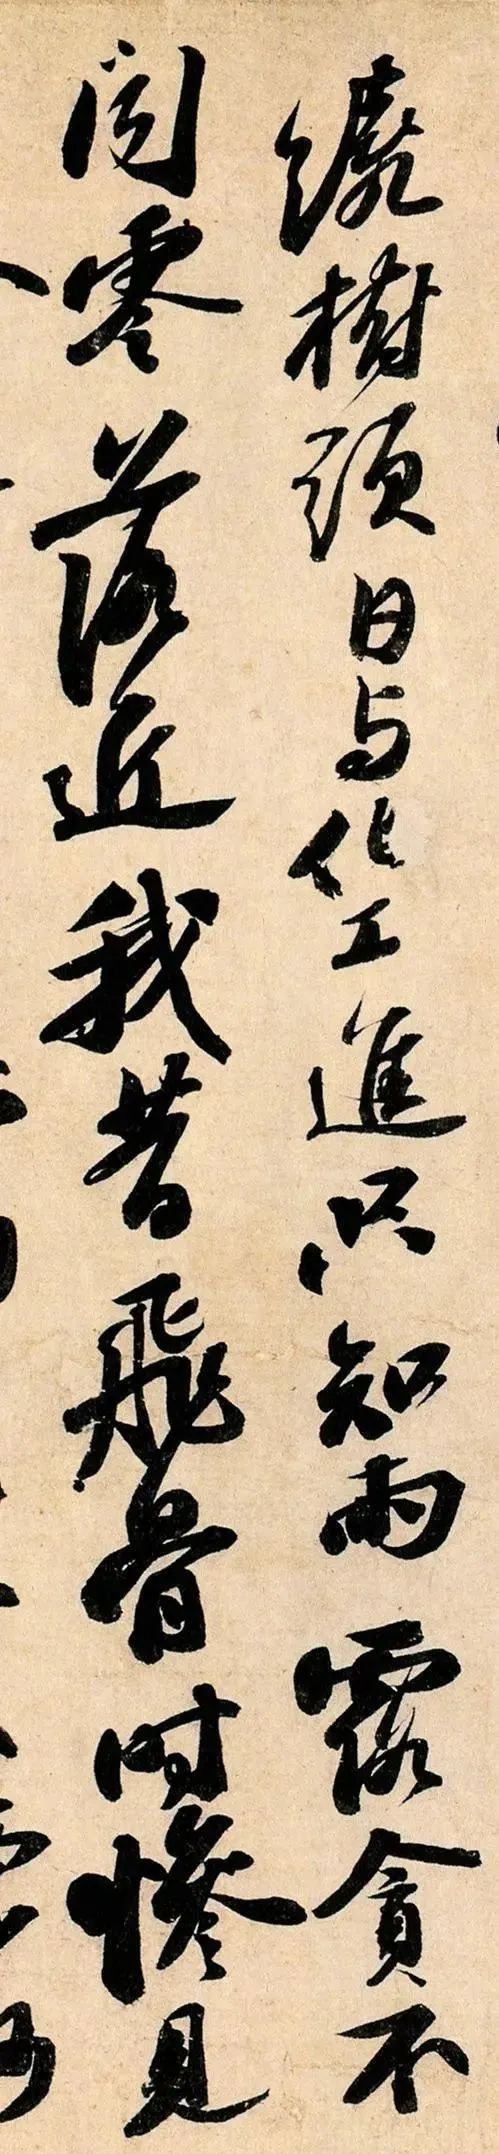 繞樹頭日与化工進只知雨露貪不
聞零落近我昔飛骨時慘見